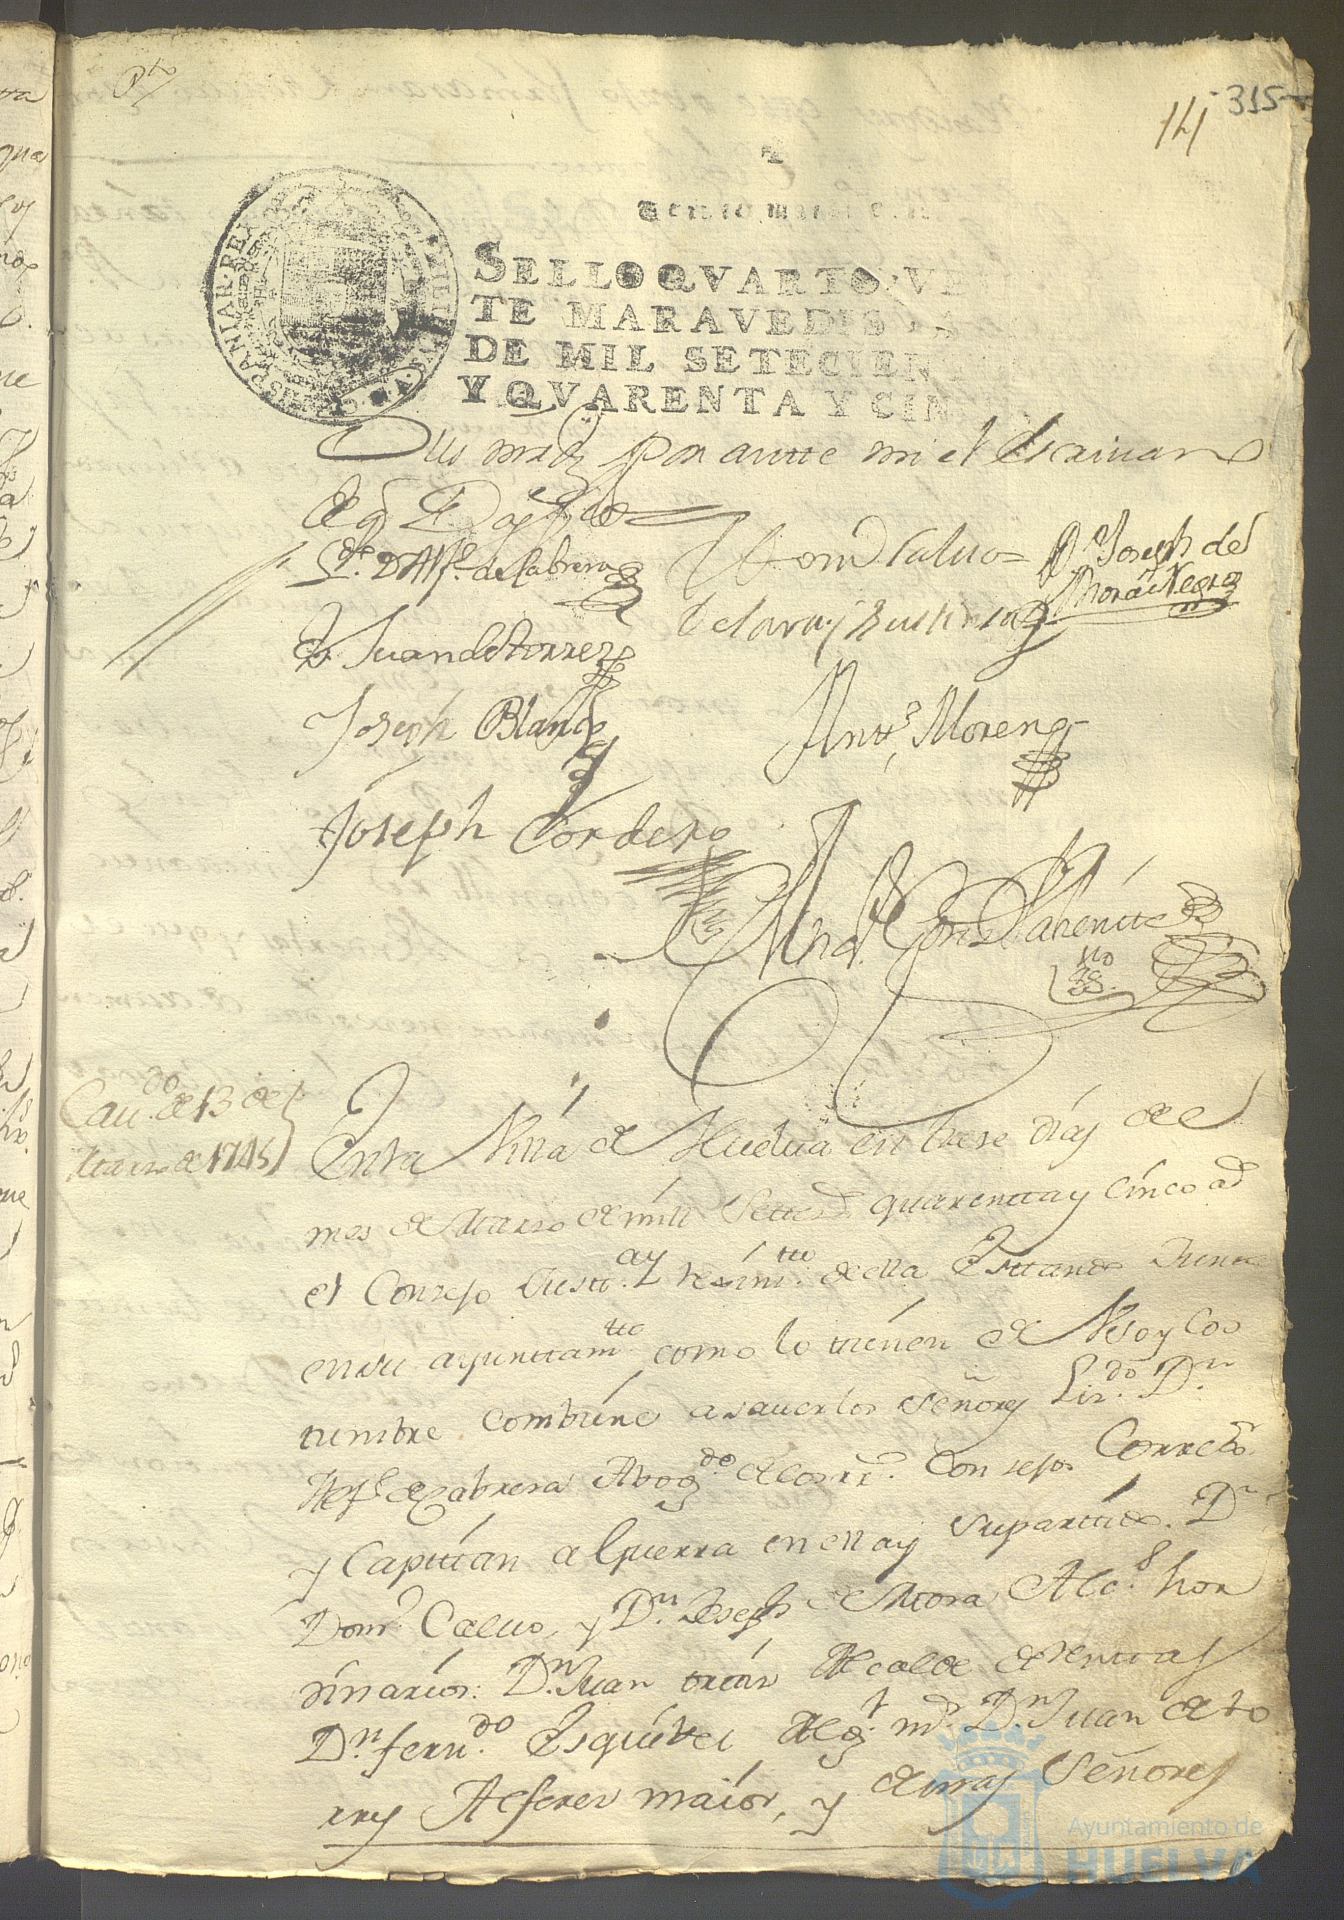 141 315
SELLO QVARTO, VE
TE MARAVEDIS
DE MIL SETECIEN
Y QVARENTA Y CIN
Sus mrds por antte mi el escrivano
de q Doy fee
Lizdo. D Alfo. de Cabrera
Domo Calvo
Dn Joseph de
Mora Negro
de Lara y
D. Juan de torres
Joseph Blanco
Antto Moreno
Joseph Cordero
Cavdo. de 13 de
Marzo de 1745
En la Villa de Huelva en trese dias de el
mes de Marzo de mill Settesd quarentta y cinco ad
el Consejo Justta y reximtto. de ella Esttando Juntto
en su ayunttamtto. como lo tienen de Vso y Cos
tumbre combiene a saver los señores Lizdo. Dn
Alfo de Cabrera Avogdo. de los Rs. Consejos Corrxor
y Capittan a Guerra en ella y su parttido. Dn
Domo Calvo, y Dn Joseph de Mora Alcs. hor
dinarios: Dn Juan Alcalde de
Dn ferndo. Esquivel Algl mr Dn Juan de to
rres Alferes maior, y demas Señores
Ayuntamiento de
HUELVA